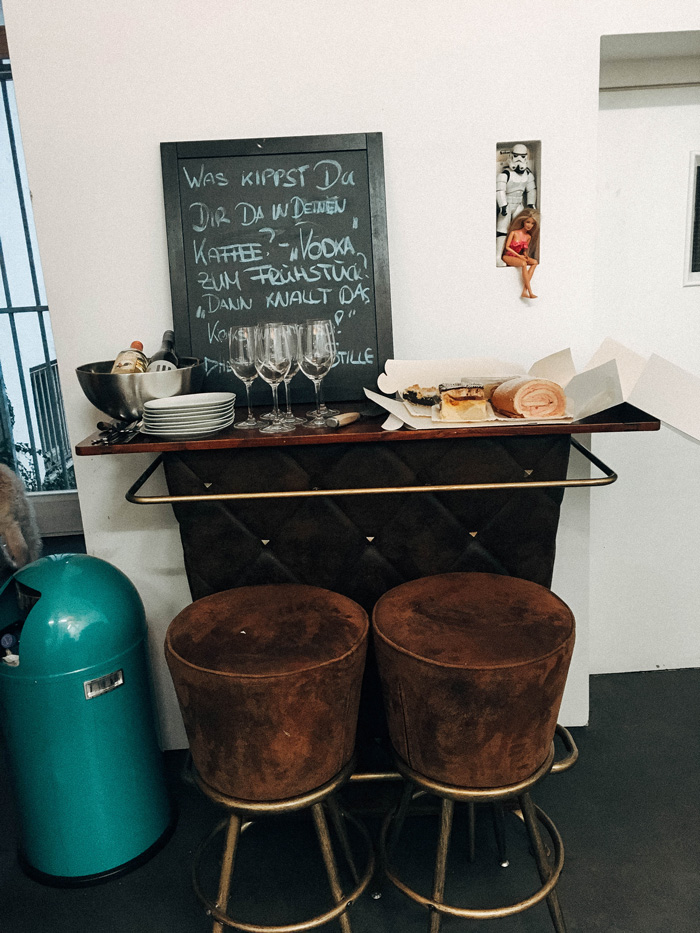 WAS KIPPST DU
DIR DA IN DEINEN
KAFFEE? - "VODKA
ZUM FRÜHSTÜCK?
"DANN KNALLT DAS